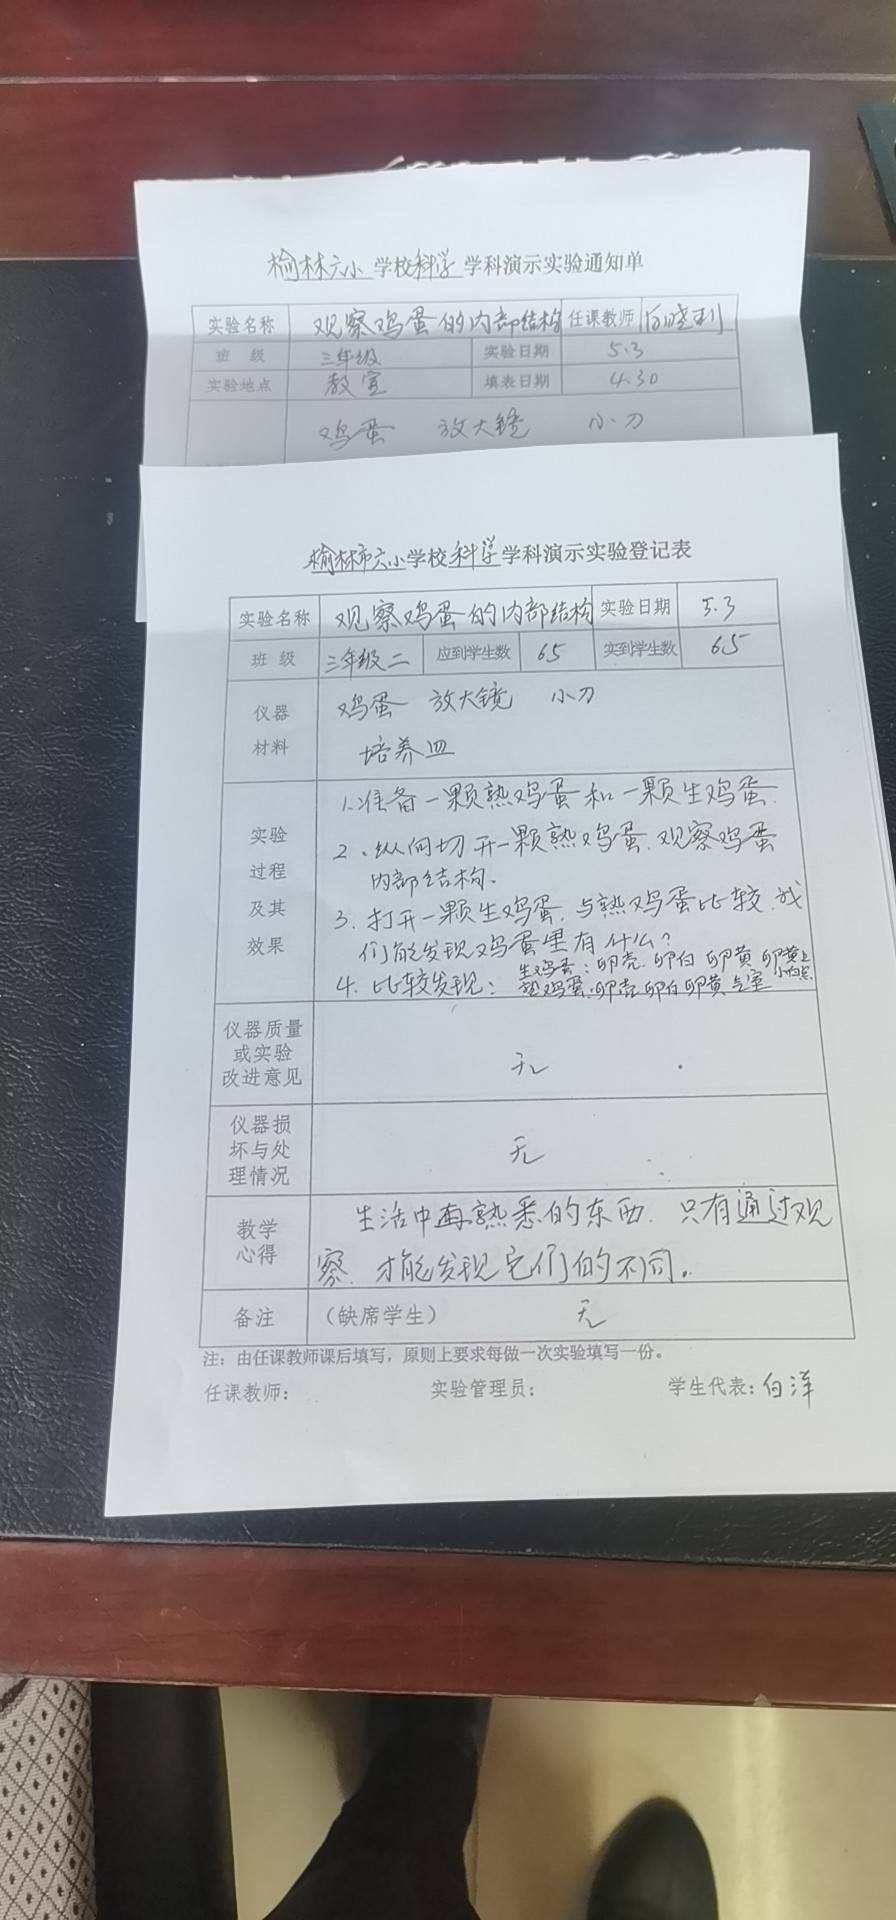 榆林六小学校科学学科演示实验通知单
实验名称 观察鸡蛋的内部结构 任课教师 白晓利
班级 三年级 实验日期 5.3
实验地点 教室 填表日期 4.30
鸡蛋 放大镜 小刀
榆林市六小学校科学学科演示实验登记表
实验名称 观察鸡蛋的内部结构 实验日期 5.3
班级 三年级二 应到学生数 65 实到学生数 65
仪器 鸡蛋 放大镜 小刀
材料 培养皿
1.准备一颗熟鸡蛋和一颗生鸡蛋.
实验 2、纵向切开一颗熟鸡蛋.观察鸡蛋
过程 内部结构.
及其 3.打开一颗生鸡蛋,与熟鸡蛋比较,我
效果 们能发现鸡蛋里有什么?
4.比较发现: 生鸡蛋:卵壳.卵白 卵黄 卵黄上小白点
熟鸡蛋:卵壳 卵白 卵黄 气室
仪器质量
或实验 无
改进意见
仪器损
坏与处 无
理情况
教学 生活中再熟悉的东西.只有通过观
心得 察.才能发现它们的不同。
备注 (缺席学生) 无
注：由任课教师课后填写，原则上要求每做一次实验填写一份。
任课教师: 实验管理员: 学生代表:白洋